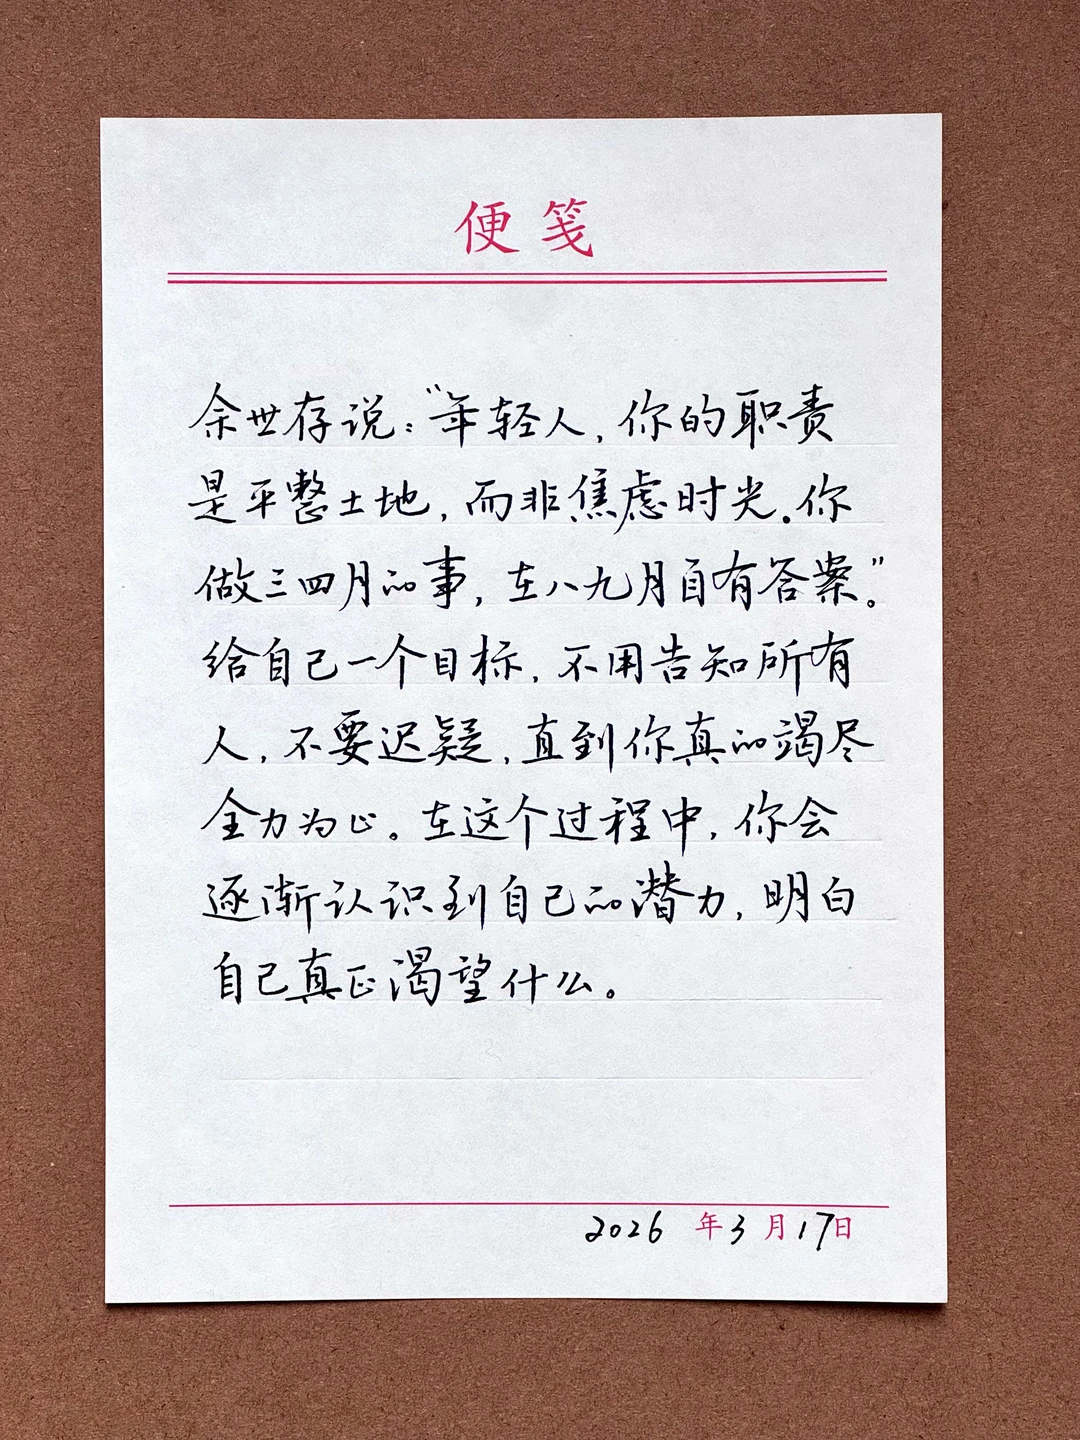 便笺
余世存说:“年轻人,你的职责
是平整土地,而非焦虑时光。你
做三四月的事,在八九月自有答案。”
给自己一个目标,不用告知所有
人,不要迟疑,直到你真的竭尽
全力为止。在这个过程中,你会
逐渐认识到自己的潜力,明白
自己真正渴望什么。
2026 年 3 月 17 日